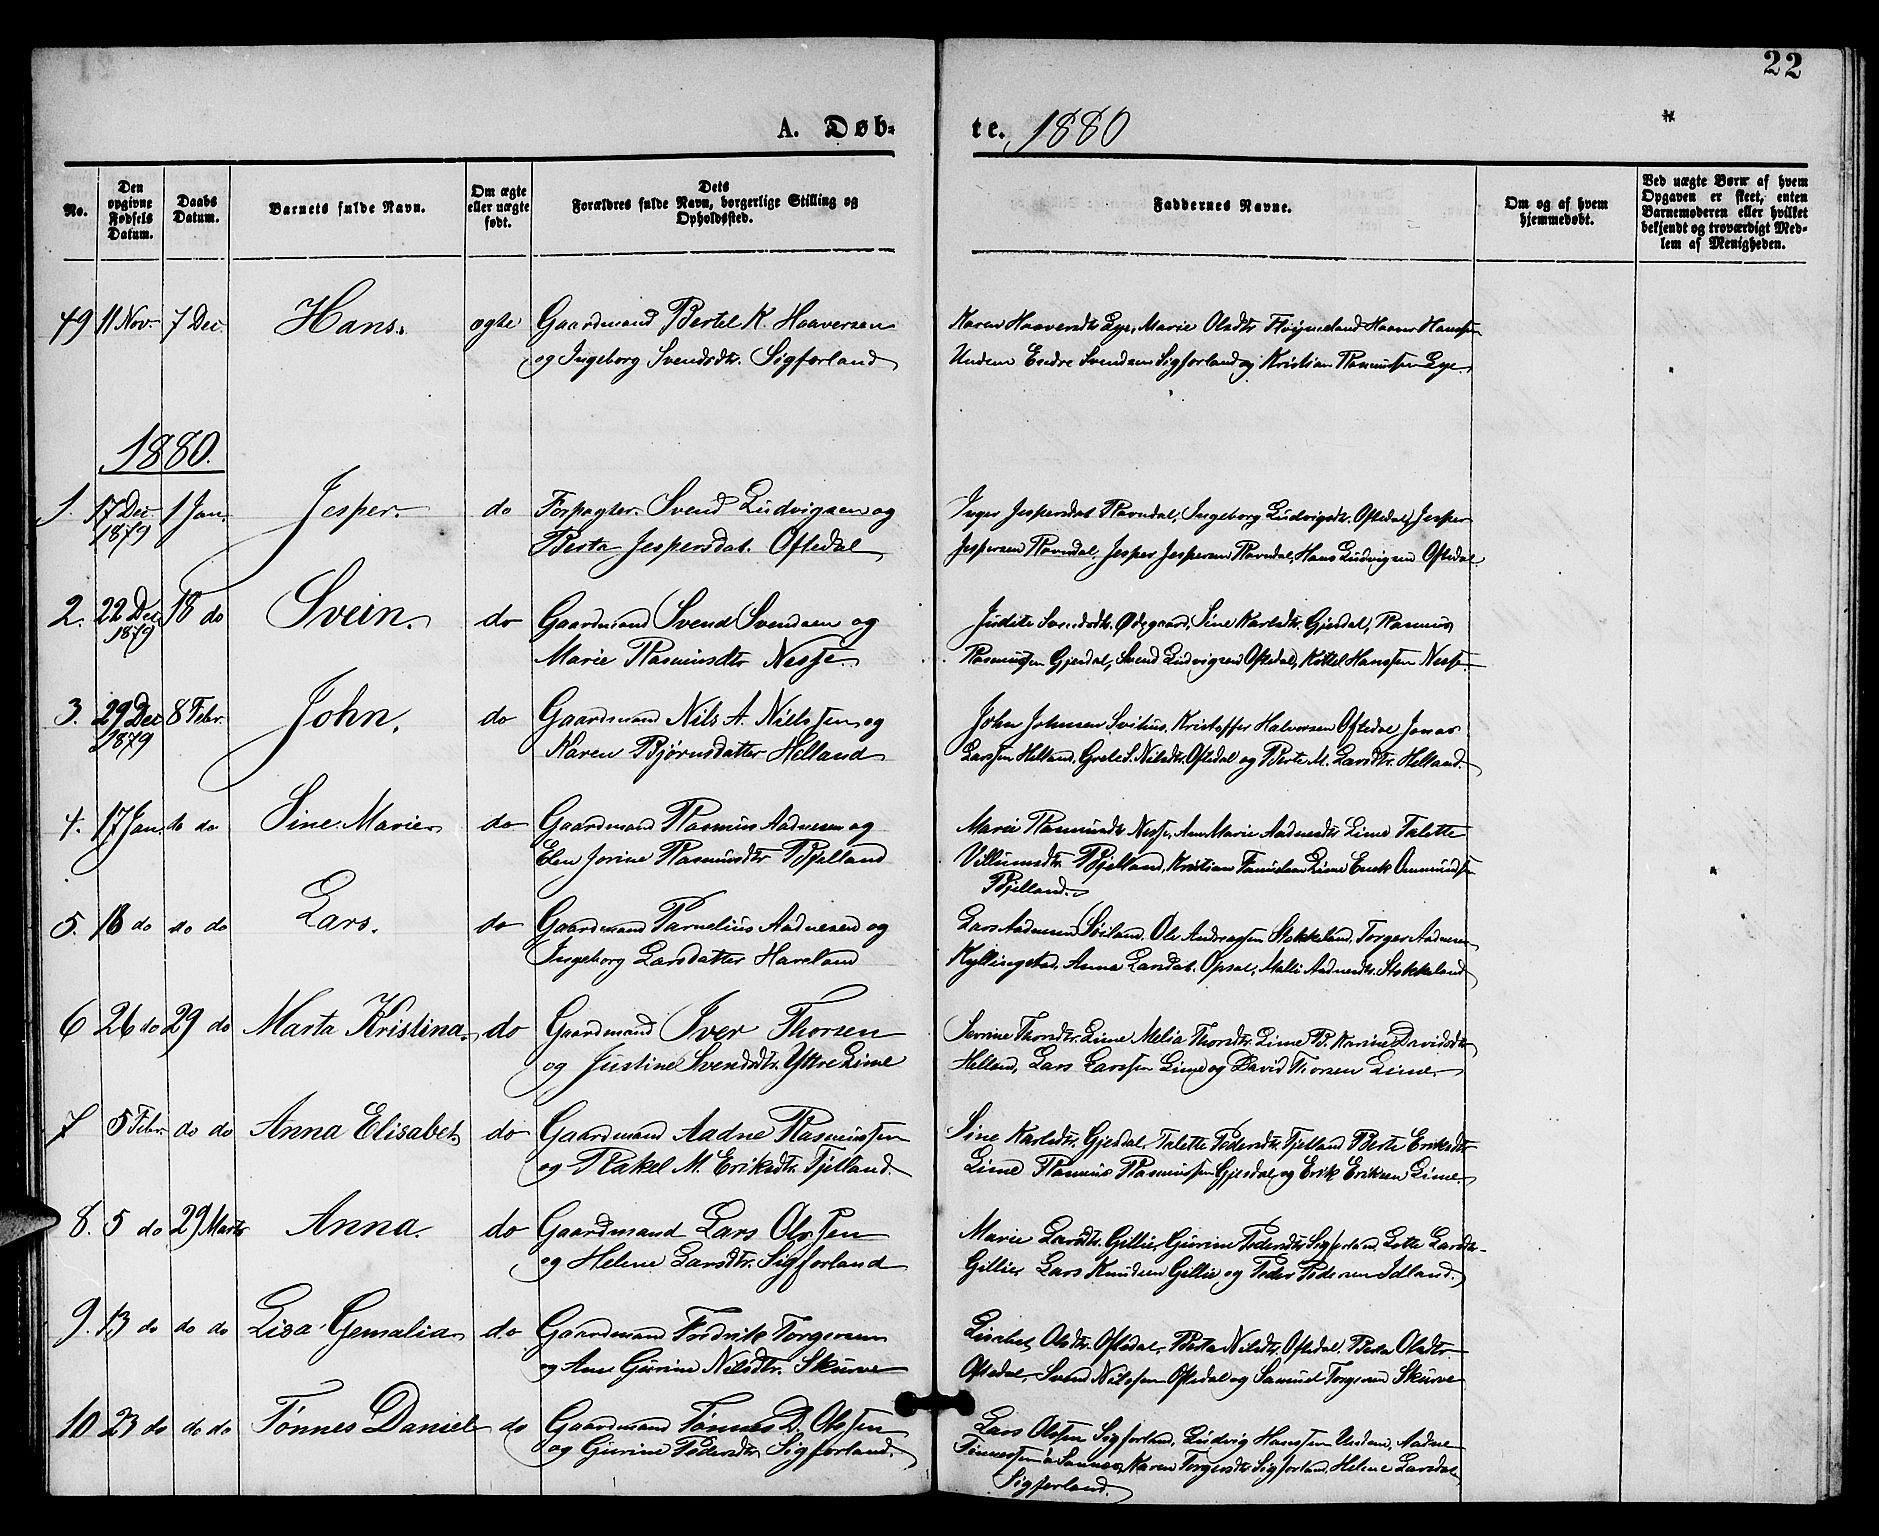 22
A. Døb-
te. 1880
No.
Den opgivne Fødsels Datum.
Daabs Datum.
Barnets fulde Navn.
Om ægte eller uægte født.
Dets Forældres fulde Navn, borgerlige Stilling og Opholdssted.
Faddernes Navne.
Om og af hvem hjemmedøbt.
Ved uægte Børn af hvem Opgaven er skeet, enten Barnemoderen eller hvilket bekjendt og troværdigt Medlem af Menigheden.
49 11 Nov. 7 Dec. Hans. ægte Gaardmand Bertel K. Haaversen
og Ingeborg Svendsdtr. Sigforland
Karen Haaversdtr Lye, Marie Olsdtr. Haaver Hanssen
Undem Endre Svendsen Sigforland og Kristian Rasmussen Lye.
1880.
1. 17 Dec. 1 Jan. Jesper. do Forpagter Svend Ludvigsen og
1879 Berta Jespersdat. Oftedal
Inger Jespersdat Ravndal, Ingeborg Ludvigsdt. Oftedal, Jesper
Jespersen Ravndal, Jesper Jespersen Ravndal, Hans Ludvigsen Oftedal
2. 22 Dec. 18 do Svein. do Gaardmand Svend Svendsen og
1879 Marie Rasmusdtr Nesse.
Judite Svendsdtr. Ødegaard, Sine Karlsdtr. Gjesdal, Rasmus
Rasmussen Gjesdal, Svend Ludvigsen Oftedal, Kittel Hanssen Nesse
3. 29 Dec 8 Febr. John. do Gaardmand Nils A. Nielssen og
1879 Karen Bjørnsdatter Helland
John Johnsen Svihus, Kristoffer Halversen Oftedal, Jonas
Larssen Helland, Grete S. Nilsdtr. Oftedal og Berte M. Larsdtr. Helland.
4. 17 Jan. do do Sine Marie do Gaardmand Rasmus Aadnesen og
Elen Jorine Rasmusdtr Bjelland
Marie Rasmusdtr Nesse, Ane Marie Aadnesdtr Lime Talette
Villumsdtr. Bjelland, Kristian Lime Enok Ommundsen
Bjelland.
5. 18 do do do Lars. do Gaardmand Parnelius Aadnesen og
Ingeborg Larsdatter Haveland
Lars Aadnesen Søiland, Ole Andreassen Stokkeland, Torger Aadnesen
Kyllingstad, Anna Larsdat. Opsal, Malli Aadnesdtr. Stokkeland
6 26 do 29 do Marta Kristina. do Gaardmand Iver Thorsen
og Justine Svendsdtr. Yttre Lime
Serine Thorsdtr. Lime Melia Thorsdtr. Lime B. Karine Davidsdtr
Helland, Lars Larssen Lime og David Thorsen Lime.
7 5 Febr. do do Anna Elisabet do Gaardmand Aadne Rasmussen
og Rakel M. Eriksdtr. Fjelland.
Sine Karlsdtr. Gjesdal, Talette Pedersdtr. Fjelland Berte Eriksdtr
Lime Rasmus Rasmussen Gjesdal og Erik Eriksen Lime.
8. 5 do 29 Marts Anna. do Gaardmand Lars Olssen
og Helene Larsdtr. Sigforland
Marie Larsdtr. Gillie, Gurine Pedersdtr Sigforland, Lotte Larsdtr.
Gillie, Lars Knudsen Gillie og Peder Pedersen Idland.
9. 13 do do do Lisa Gemalia do Gaardmand Fredrik Torgersen
og Ane Gurine Nilsdtr. Skurve
Lisabet Olsdtr. Oftedal, Berta Nilsdtr. Oftedal, Berta Olsdtr.
Oftedal, Svend Nilssen Oftedal og Samuel Torgersen Skurve
10 23 do do do Tønnes Daniel do Gaardmand Tønnes D. Olssen
og Gurine Pedersdtr. Sigforland.
Lars Olssen Sigforland, Ludvig Hanssen Undem, Aadne
Tønnessen Sannes, Karen Torgersdtr. Sigforland, Helene Larsdat.
Sigforland.